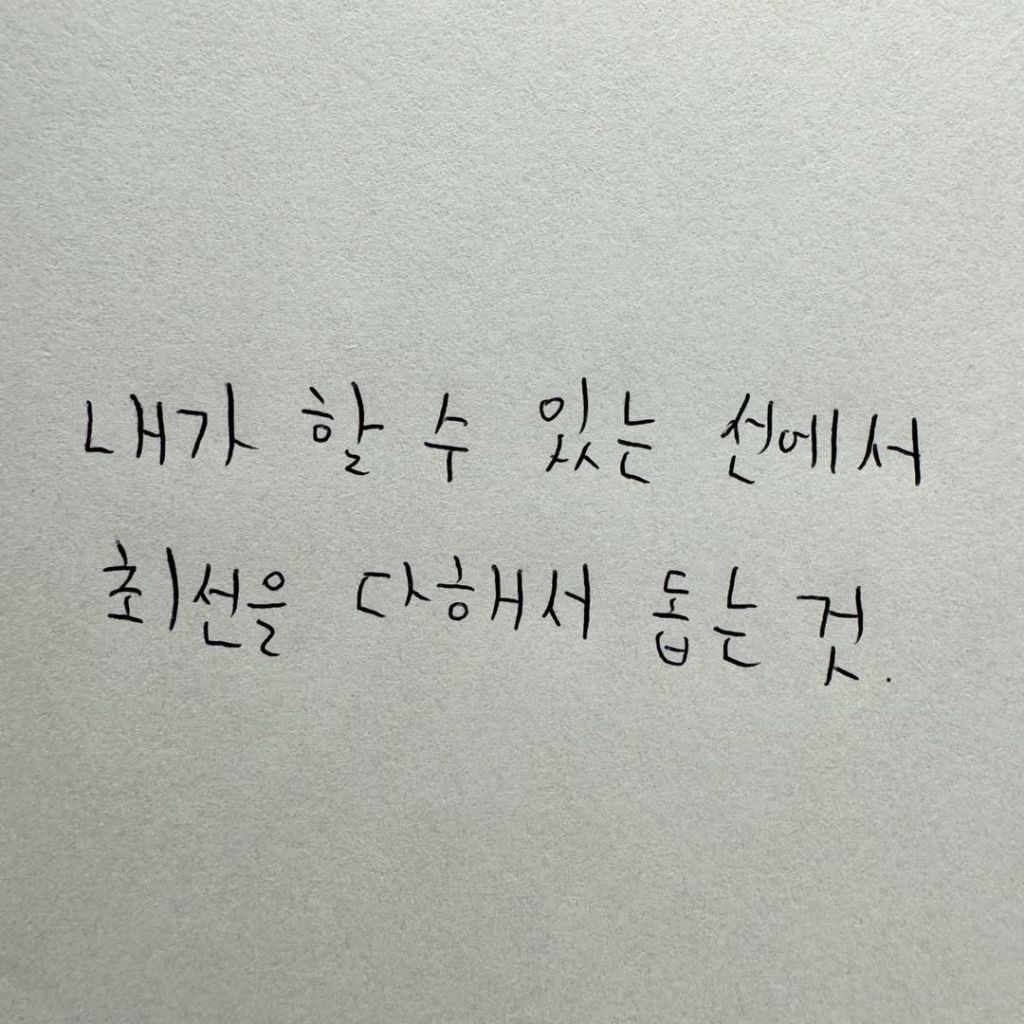 내가 할 수 있는 선에서
최선을 다해서 돕는 것.